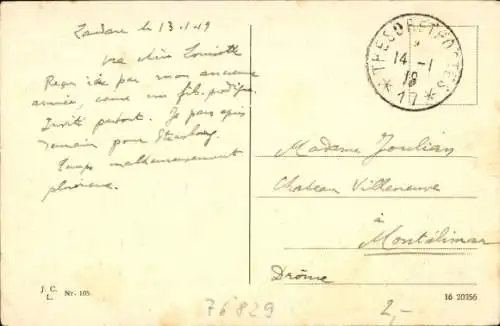 Landau le 13-1-19
Ma chère Louisette
Reçu ici par mon ancienne
armée, comme un fils prodigue.
Invité partout. Je pars après
demain pour Strasbourg.
Temps malheureusement
pluvieux.
TRESOR ET POSTES
14 -1
* 17 *
Madame Joulian
Chateau Villeneuve
à
Montélimar
Drôme
J. C.
L. Nr. 105
16 20356
76829
2,-